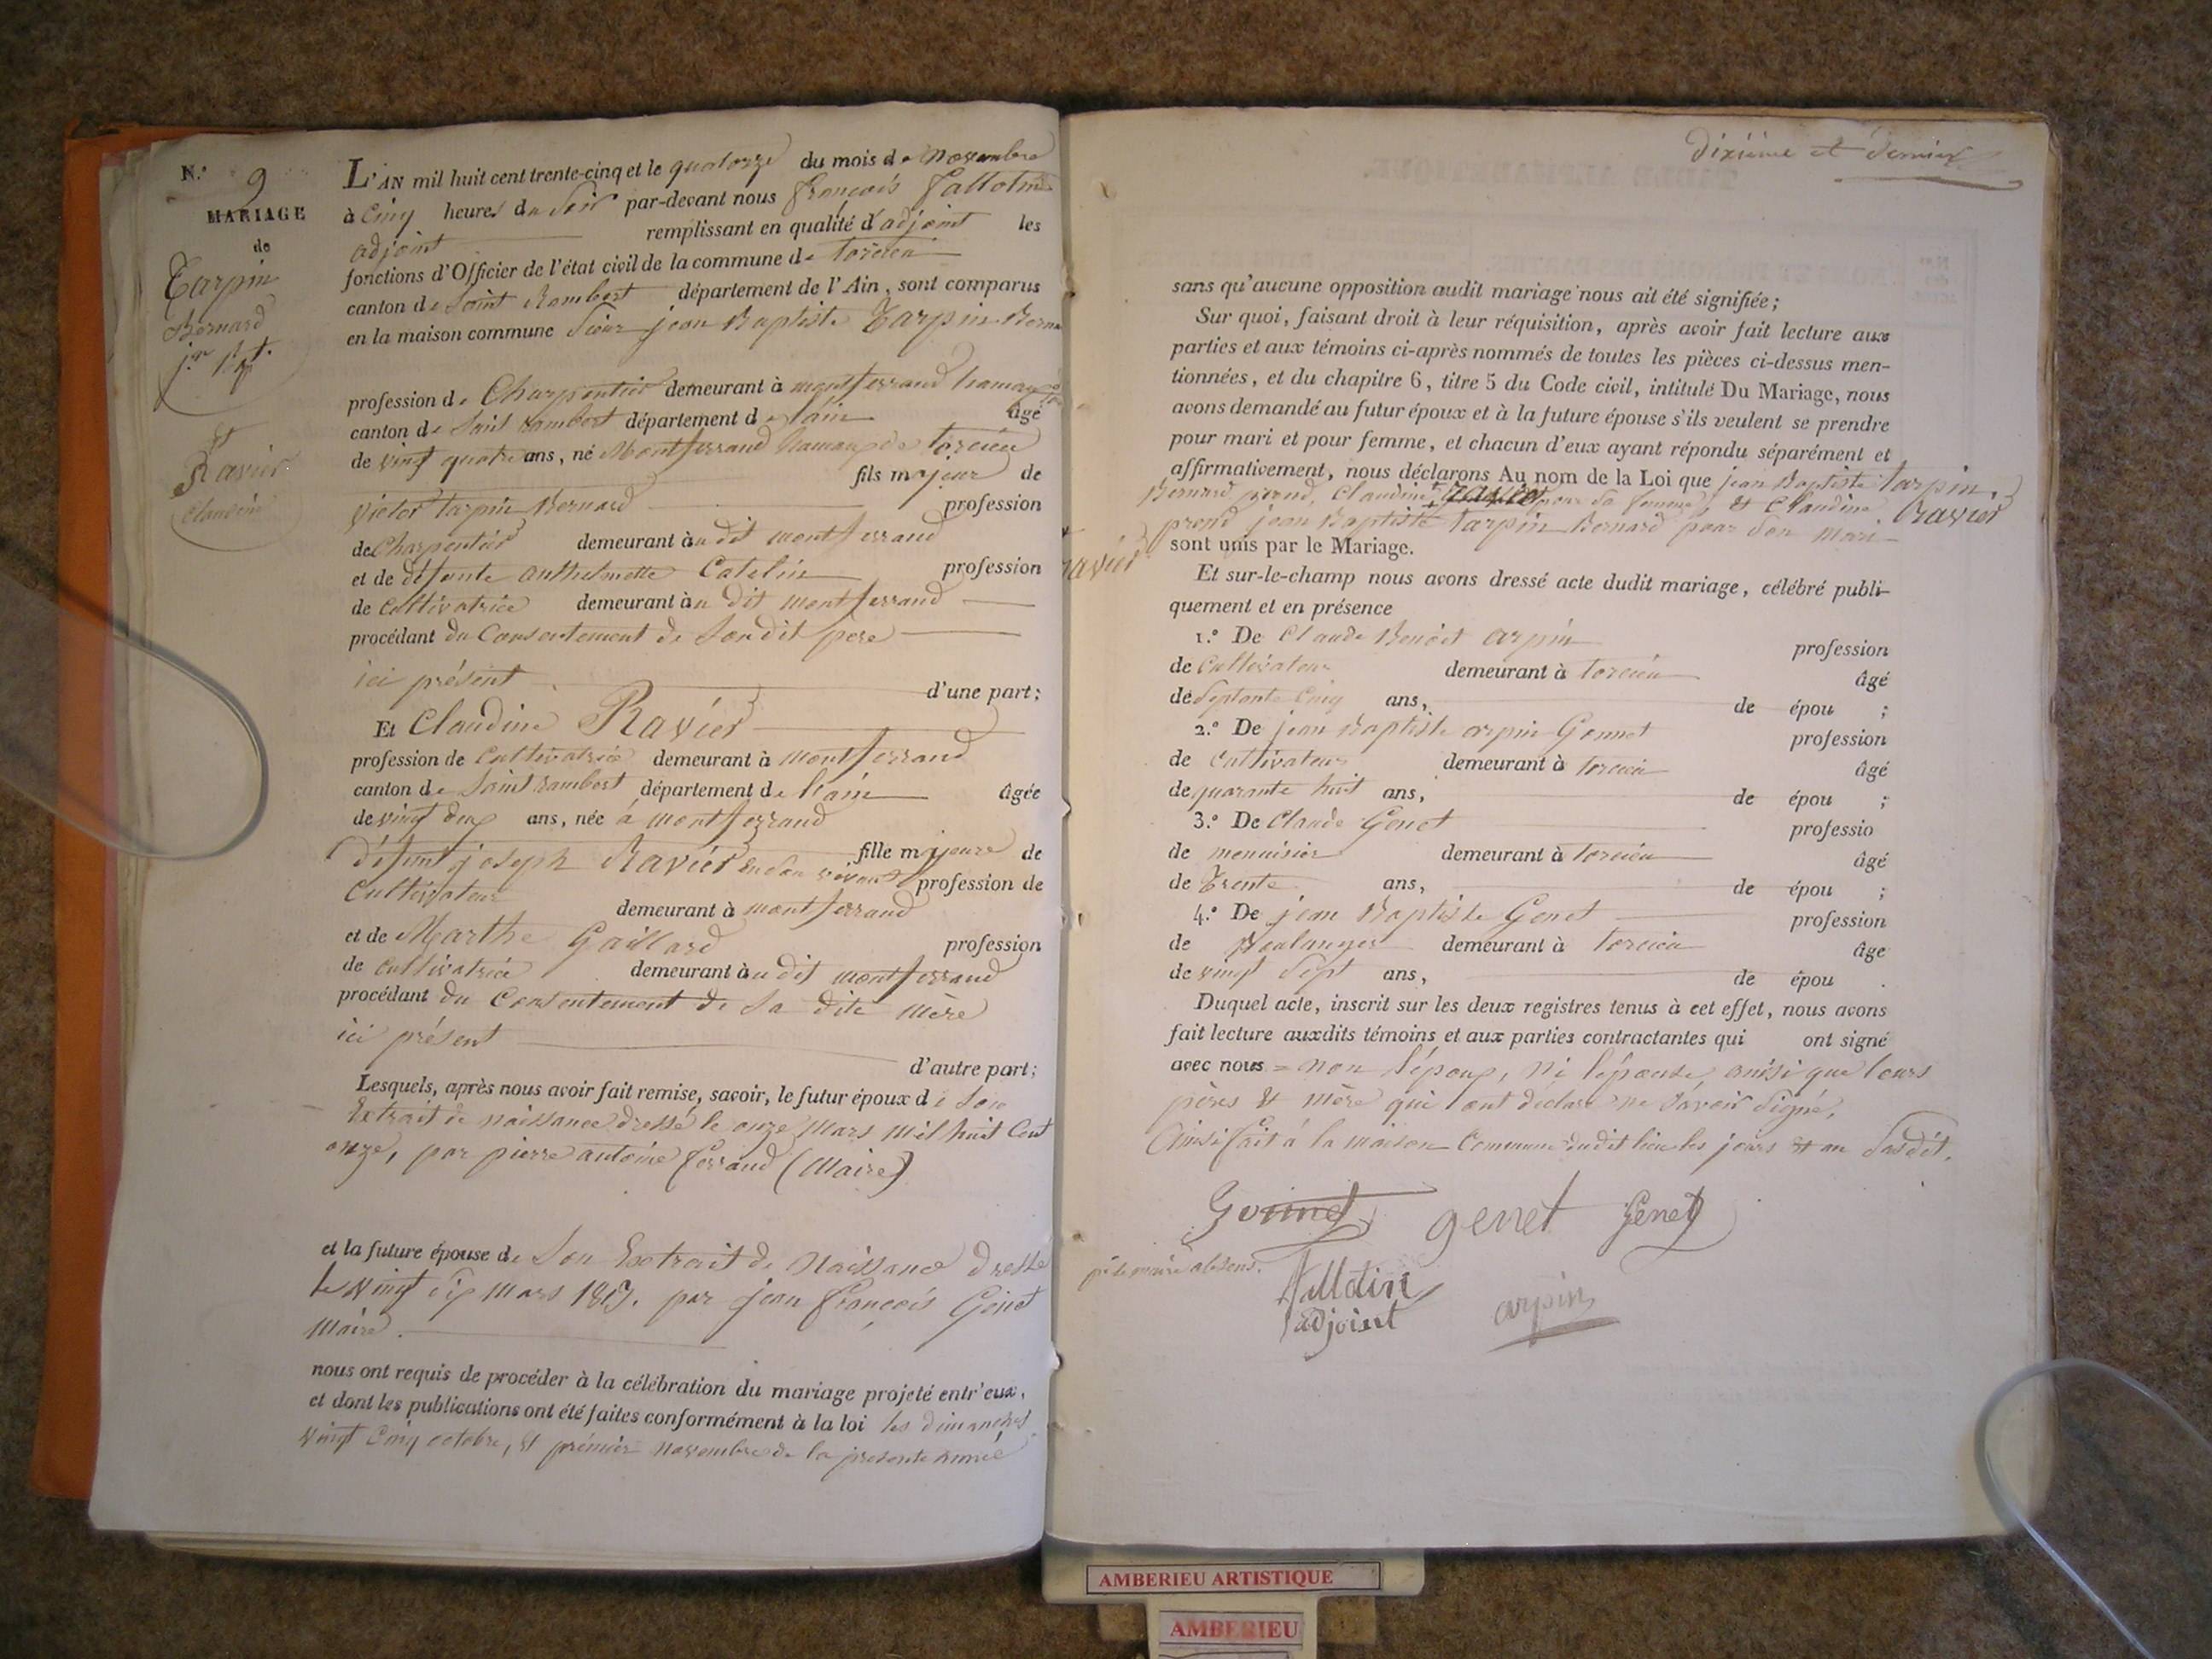 N.º 9
MARIAGE
de
Tarpin
Bernard
j.n Bpt.
et
Ravier
Claudine
L'AN mil huit cent trente-cinq et le quatorze du mois de Novembre
à Cinq heures du Soir par-devant nous françois fallotin
adjoint remplissant en qualité d'adjoint les
fonctions d'Officier de l'état civil de la commune de torcieu
canton de Saint Rambert département de l'Ain, sont comparus
en la maison commune Sieur jean Baptiste Tarpin Berna
profession de Charpentier demeurant à montferrand hamau
canton de Saint rambert département de l'ain âgé
de vingt quatre ans, né Montferrand hamau de torcieu
fils majeur de
victor tarpin Bernard profession
de Charpentier demeurant au dit montferrand
et de défunte anthelmette Catelin profession
de Cultivatrice demeurant au dit montferrand
procédant du Consentement de Son dit père
ici présent d'une part;
Et Claudine Ravier
profession de Cultivatrice demeurant à montferrand
canton de Saint rambert département de l'ain âgée
de vingt deux ans, née à montferrand
fille majeure de
défunt joseph Ravier en son vivant profession de
Cultivateur demeurant à montferrand
et de Marthe Gaillard profession
de Cultivatrice demeurant au dit montferrand
procédant du Consentement de Sa dite Mère
ici présent
d'autre part;
Lesquels, après nous avoir fait remise, savoir, le futur époux de Son
Extrait de naissance dressé le onze Mars mil huit Cent
onze, par pierre antoine ferrand (Maire)
et la future épouse de Son Extrait de Naissance dressé
le vingt six mars 1813. par jean françois Genet
Maire.
nous ont requis de procéder à la célébration du mariage projeté entr'eux,
et dont les publications ont été faites conformément à la loi les dimanches
vingt Cinq octobre, et premier novembre de la présente année
dixième et dernier
sans qu'aucune opposition audit mariage nous ait été signifiée;
Sur quoi, faisant droit à leur réquisition, après avoir fait lecture aux
parties et aux témoins ci-après nommés de toutes les pièces ci-dessus men-
tionnées, et du chapitre 6, titre 5 du Code civil, intitulé Du Mariage, nous
avons demandé au futur époux et à la future épouse s'ils veulent se prendre
pour mari et pour femme, et chacun d'eux ayant répondu séparément et
affirmativement, nous déclarons Au nom de la Loi que jean Baptiste tarpin
Bernard prend Claudine ravier pour Sa femme, et Claudine Ravier
prend jean Baptiste tarpin Bernard pour Son Mari
ravier
sont unis par le Mariage.
Et sur-le-champ nous avons dressé acte dudit mariage, célébré publi-
quement et en présence
1.º De Claude Benoit arpin profession
de Cultivateur demeurant à torcieu âgé
de Septante Cinq ans, de épou ;
2.º De jean Baptiste arpin Gonnet profession
de Cultivateur demeurant à torcieu âgé
de quarante huit ans, de épou ;
3.º De Claude Genet professio
de menuisier demeurant à torcieu âgé
de Trente ans, de épou ;
4.º De jean Baptiste Genet profession
de Boulanger demeurant à torcieu âge
de vingt Sept ans, de épou .
Duquel acte, inscrit sur les deux registres tenus à cet effet, nous avons
fait lecture auxdits témoins et aux parties contractantes qui ont signé
avec nous = non l'époux, ni l'épouse, ainsi que leurs
pères et mère qui ont déclaré ne Savoir Signé,
Ainsi fait à la maison Commune dudit lieu les jours et an Susdit.
Goinnet genet Genet
pr le maire absens.
fallotin
adjoint
arpin
AMBERIEU ARTISTIQUE
AMBERIEU